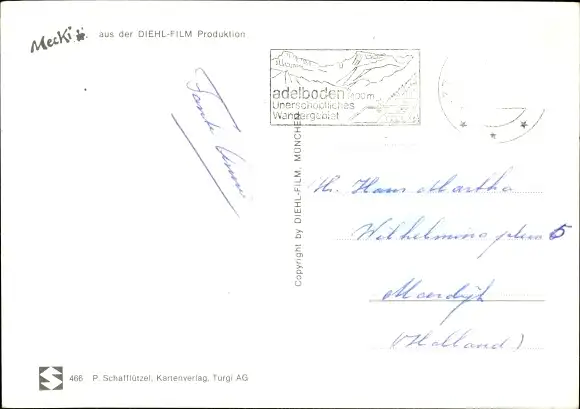 Mecki aus der DIEHL-FILM Produktion
adelboden 1400 m
Unerschöpfliches
Wandergebiet
Tante
Copyright by DIEHL-FILM, MÜNCHEN
Hr. Hans Martha
Wilhelmina plein 5
Moerdijk
(Holland)
466 P. Schafflützel, Kartenverlag, Turgi AG